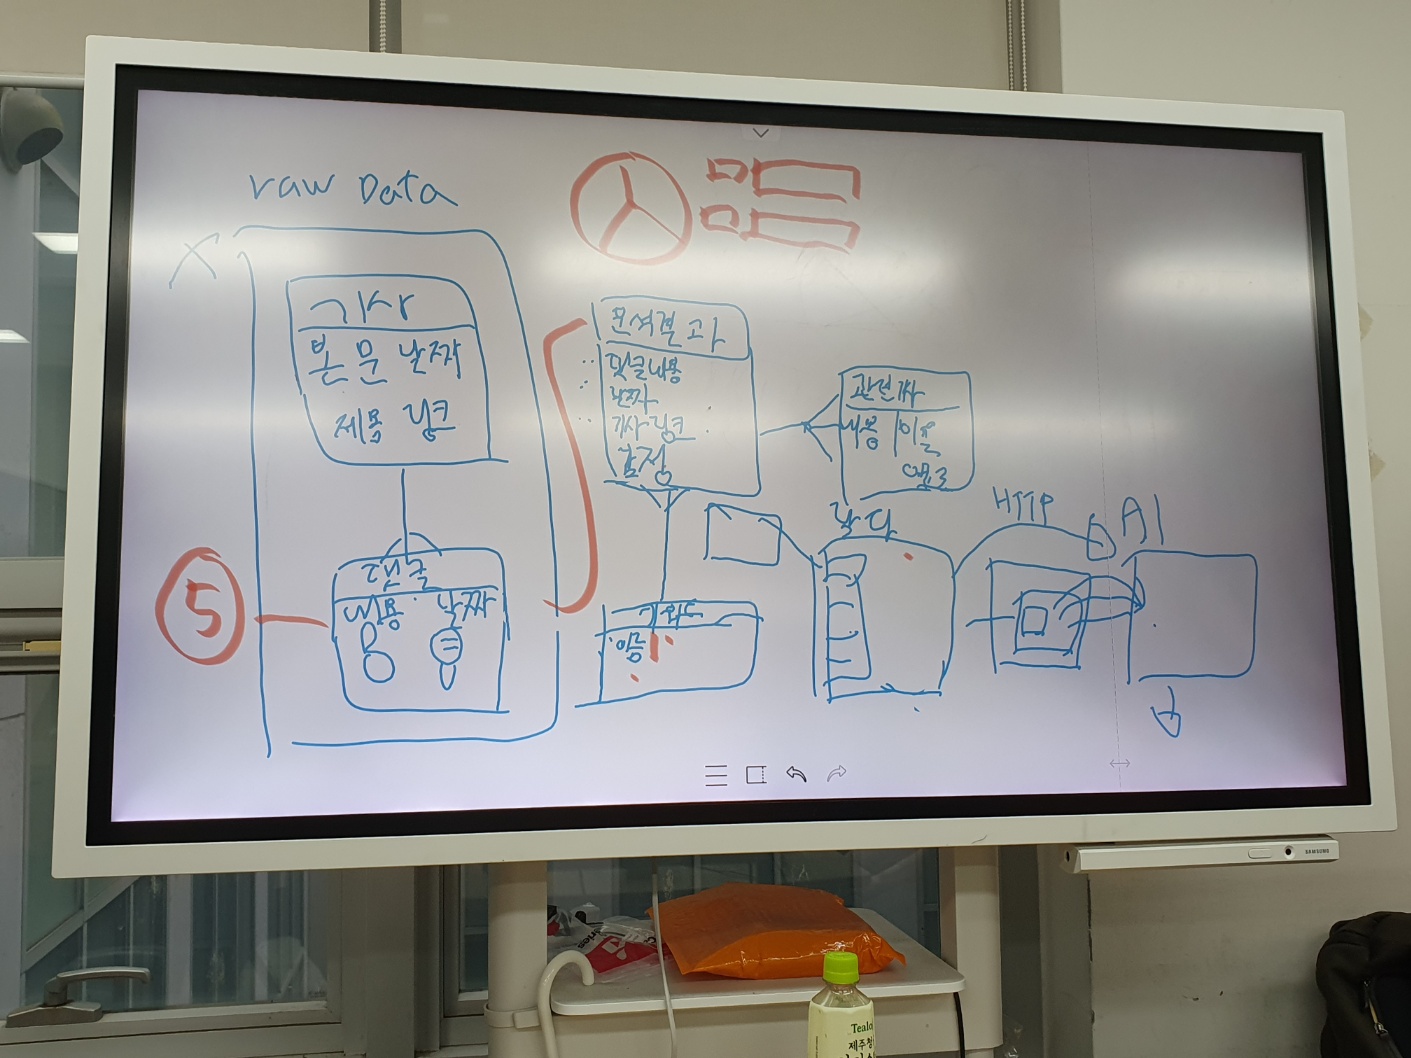 raw Data
X
기사
본문 날짜
제목 링크
댓글
내용 날짜
5
분석결과
댓글내용
날짜
기사링크
감정
키워드
이름
내용 이름
람다
HTTP
AI
SAMSUNG
제주